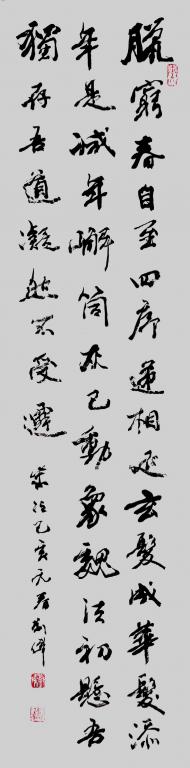 臘窮春自至四序遞相延玄髮成華髮添
年是減年嶰筒灰已動象魏法初懸吾
獨存吾道凝然不受遷
乙亥元春